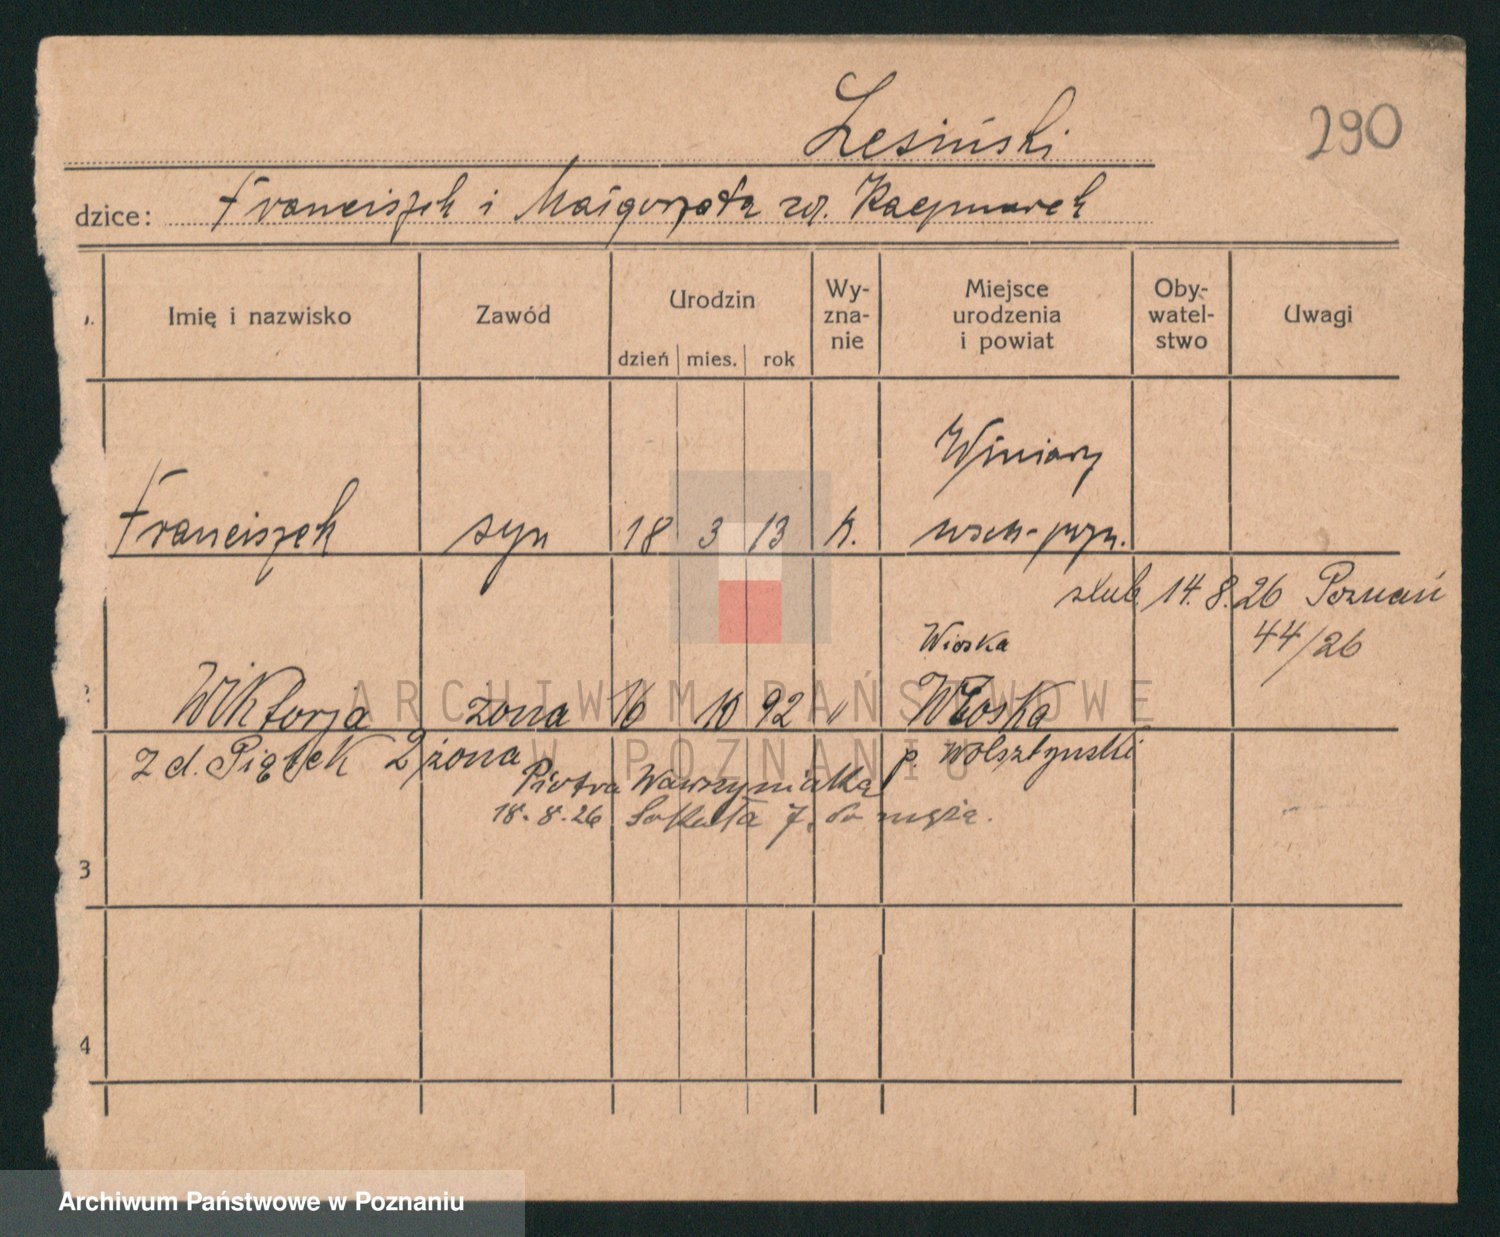 Lesiński
290
dzice: Franciszek i Małgorzata zd. Kaczmarek
Imię i nazwisko Zawód Urodzin dzień mies. rok Wy-zna-nie Miejsce urodzenia i powiat Oby-watel-stwo Uwagi
Winiary
Franciszek syn 18 3 13 k.
ślub 14.8.26 Poznań
44/26
Wioska
Wiktorja żona 16 10 92 "
z d. Piątek 2 żona p. Wolsztyński
Piotra Wawrzyniaka
18.8.26 7, do męża.
3
4
ARCHIWUM PAŃSTWOWE
W POZNANIU
Archiwum Państwowe w Poznaniu